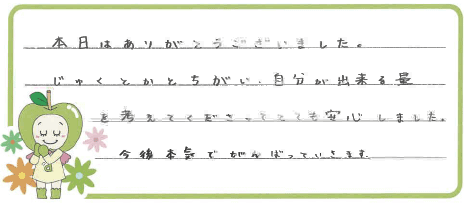 本日はありがとうございました。
じゅくとかとちがい、自分が出来る量
を考えてくださってとても安心しました。
今後本気でがんばっていきます。